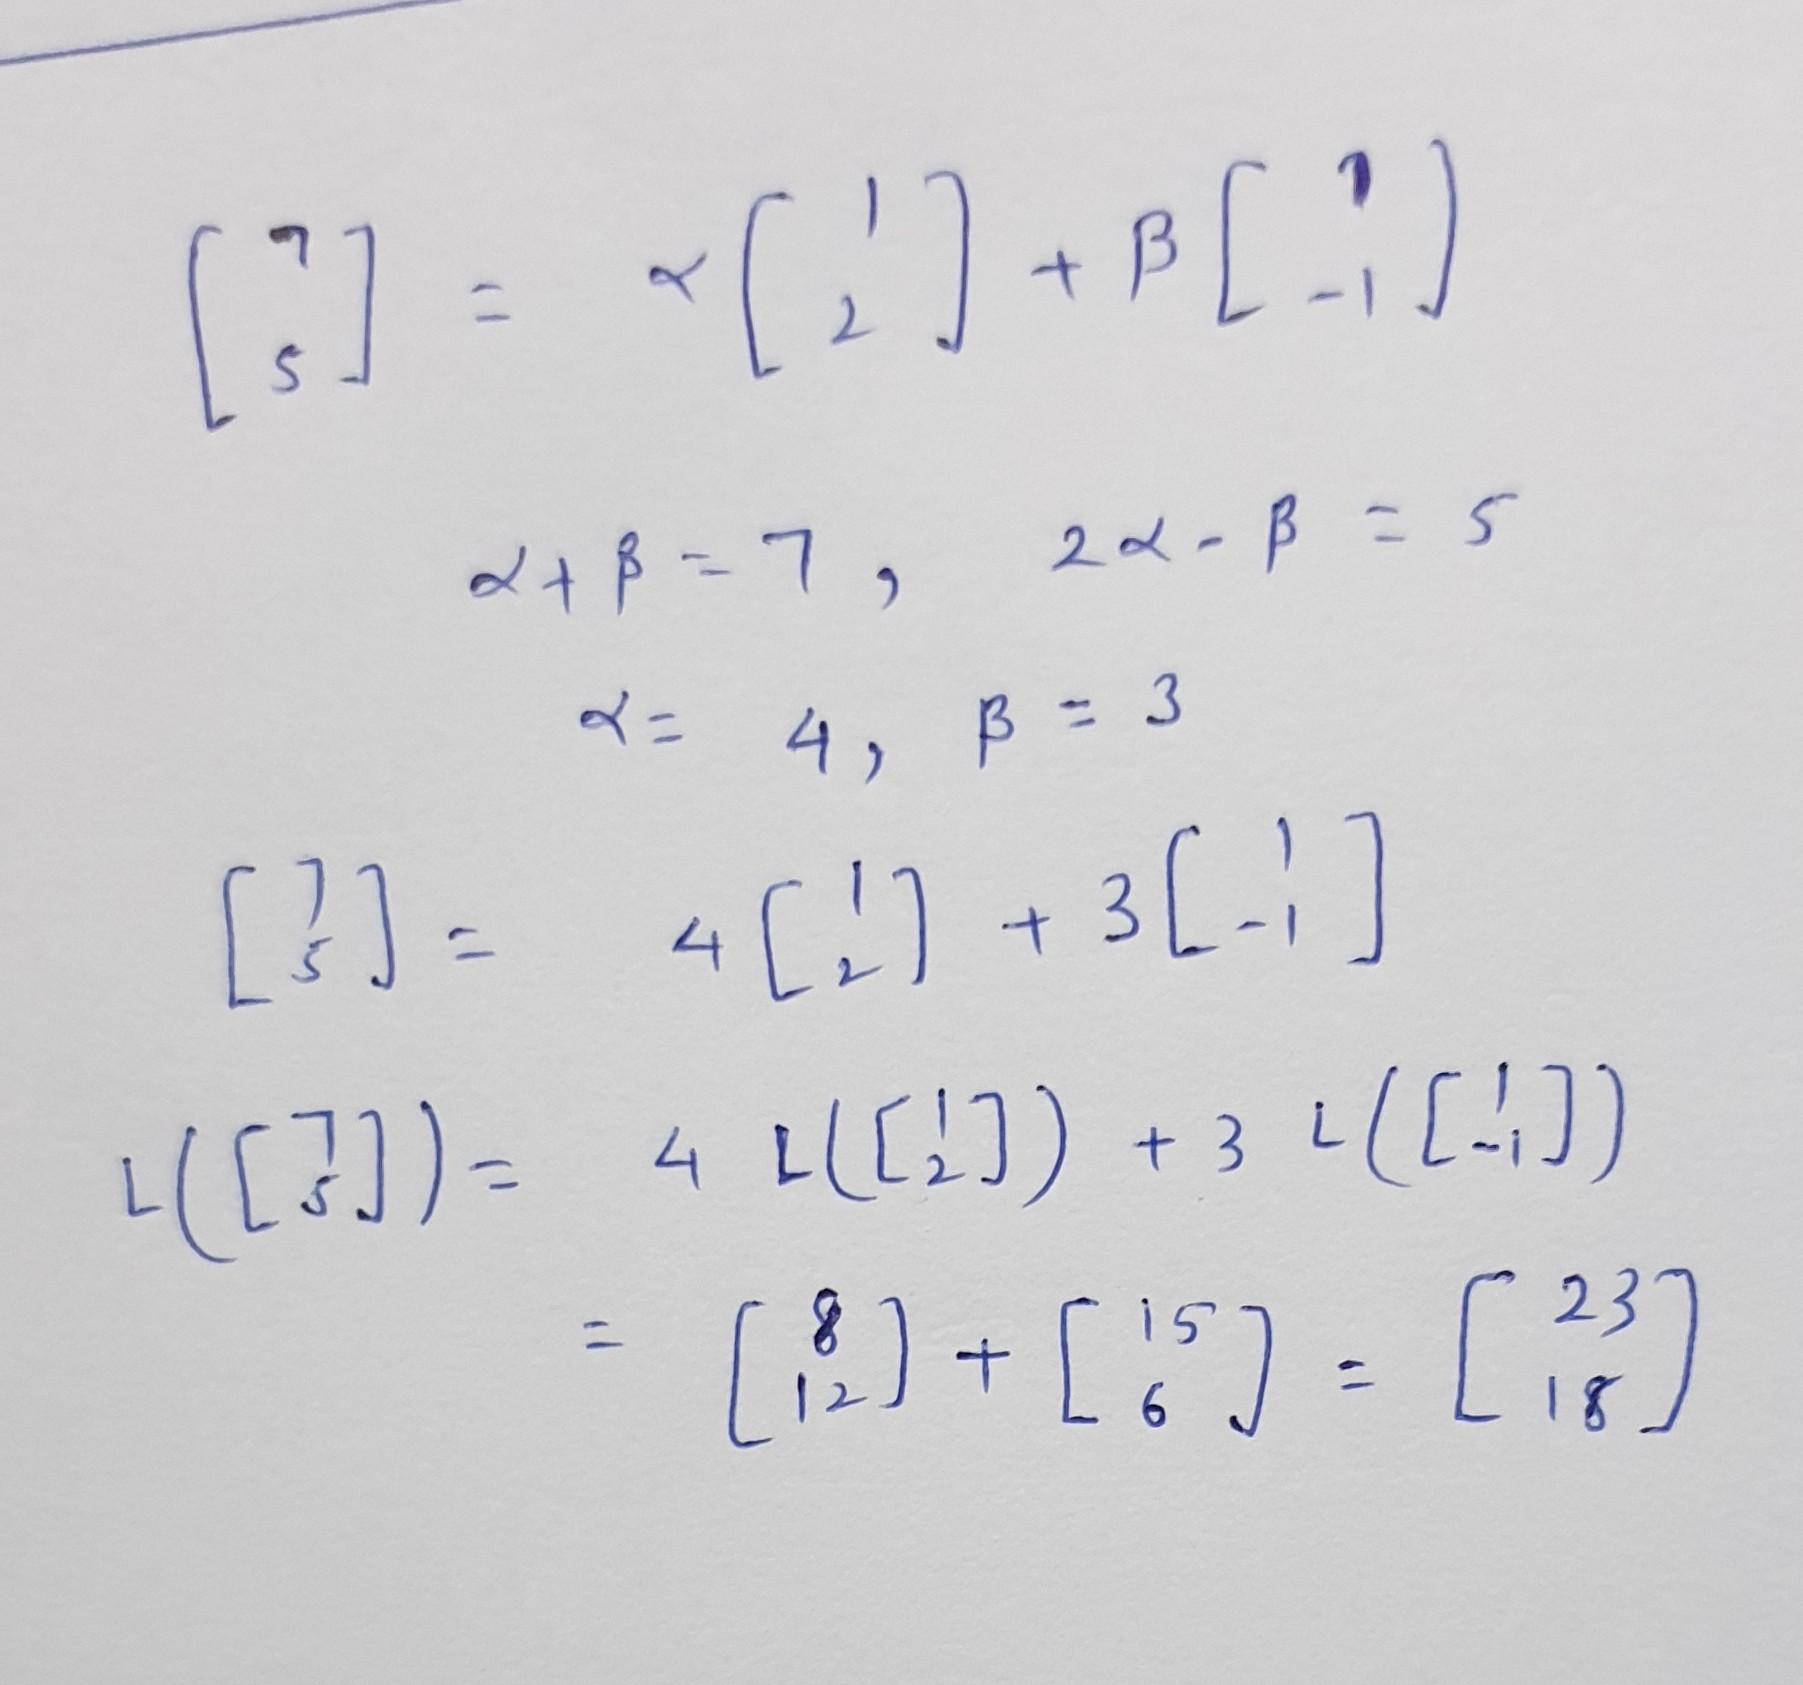 [7 5] = α[1 2] + β[1 -1]
α+β=7, 2α-β = 5
α= 4, β = 3
[7 5] = 4[1 2] + 3[1 -1]
L([7 5]) = 4 L([1 2]) + 3 L([1 -1])
= [8 12] + [15 6] = [23 18]